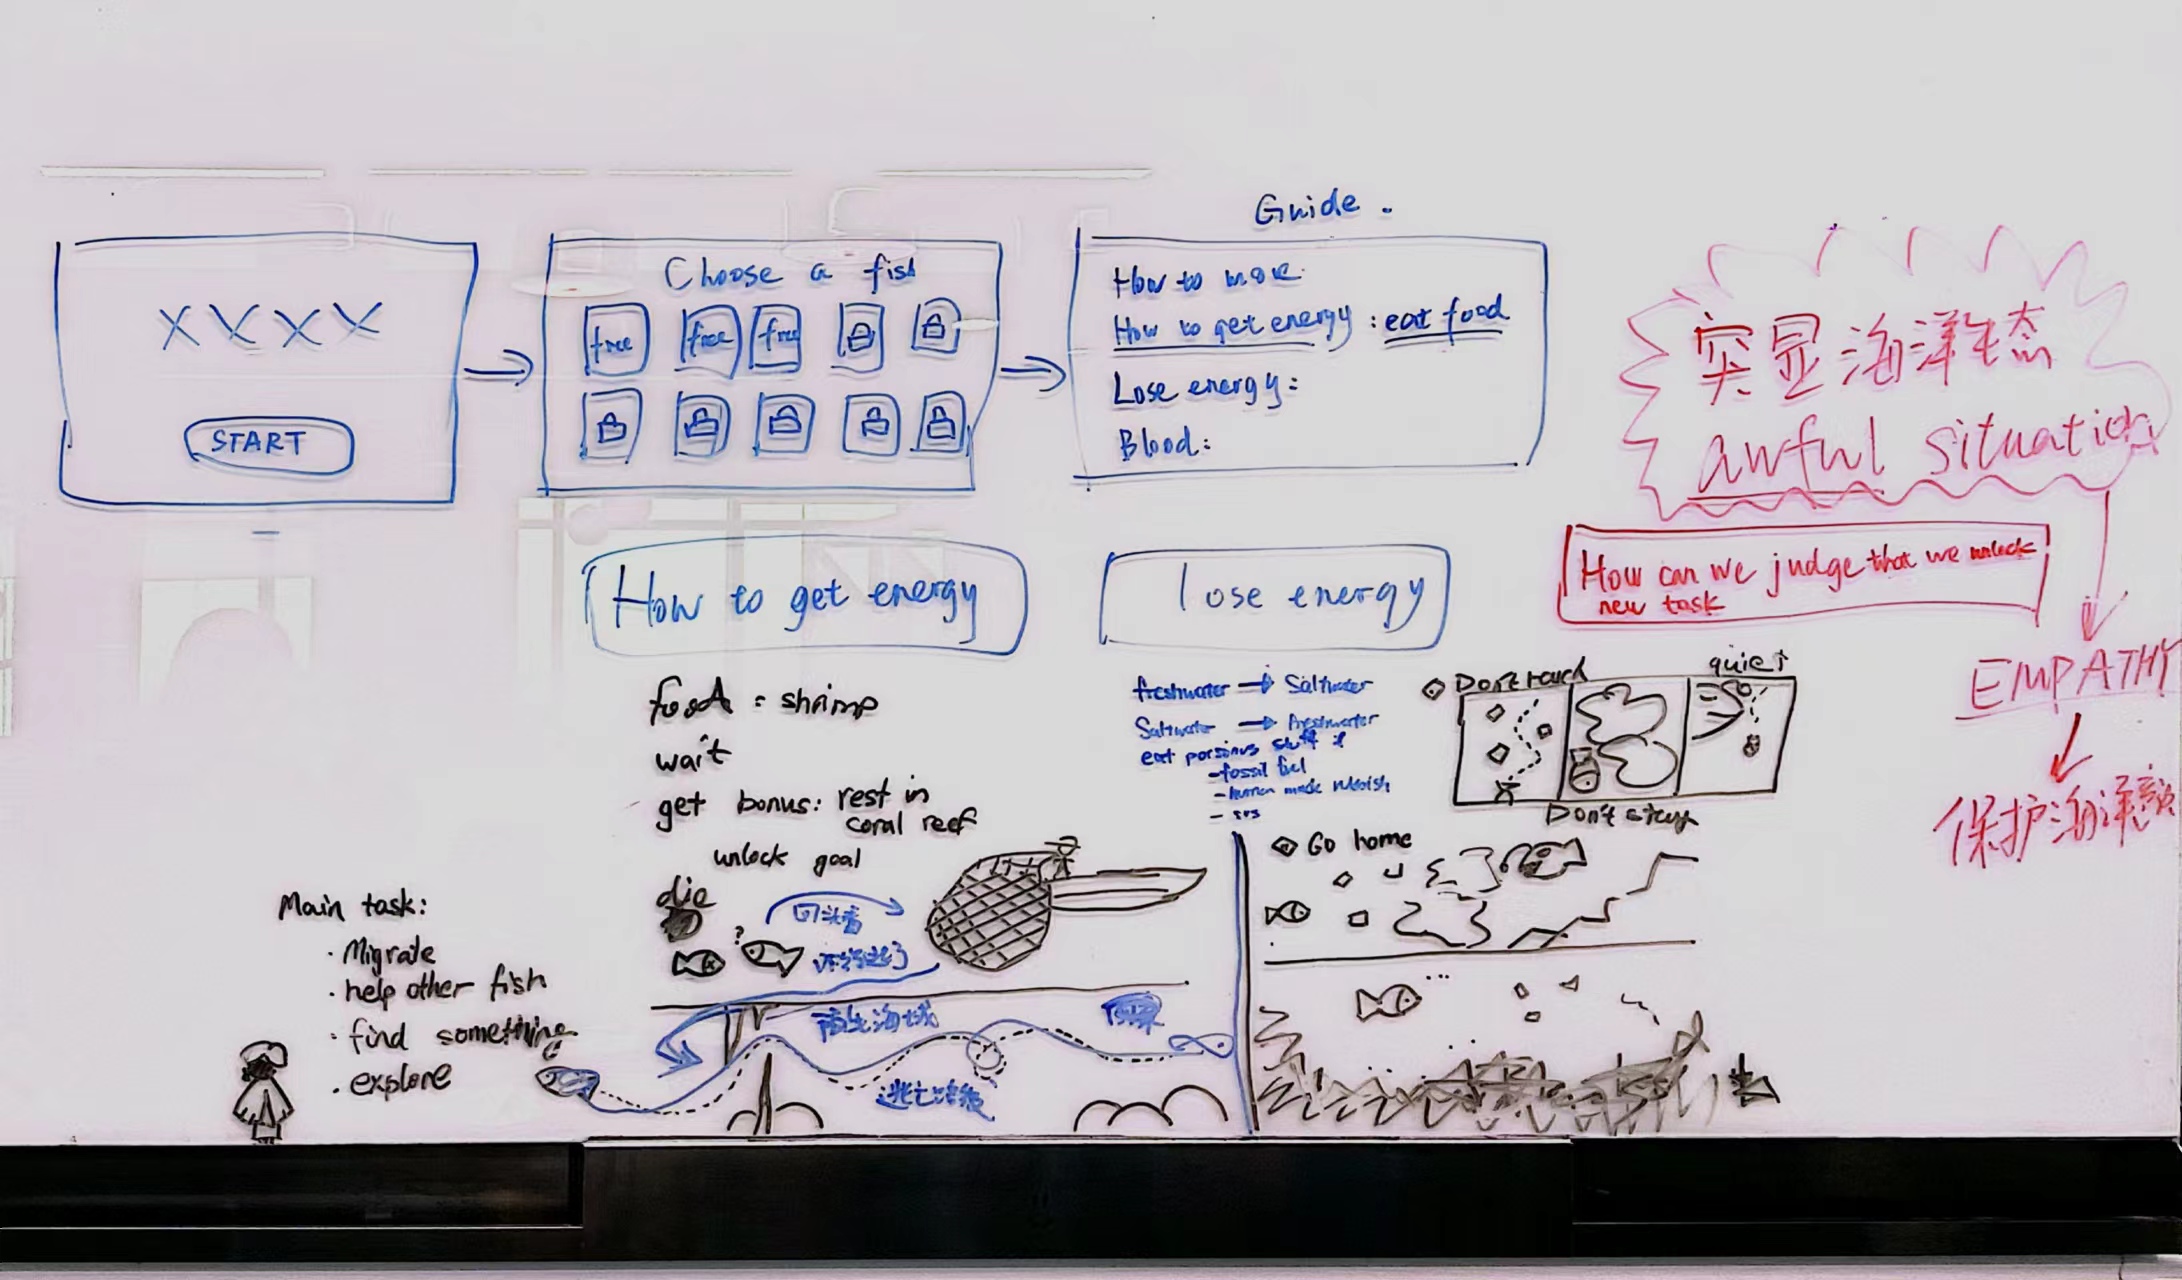 XXXX
START
Choose a fish
free free free
Guide.
How to move
How to get energy : eat food
Lose energy:
Blood:
突显海洋生态
awful situation
How can we judge that we unlock
new task
EMPATHY
保护海洋意识
How to get energy
food = shrimp
wait
get bonus: rest in
coral reef
unlock goal
die
?
回头看
lose energy
freshwater → Saltwater
Saltwater → freshwater
eat poisonus stuff
-fossil fuel
-human made rubbish
Don't touch
quiet
Don't stay
Go home
Main task:
· Migrate
· help other fish
· find something
· explore